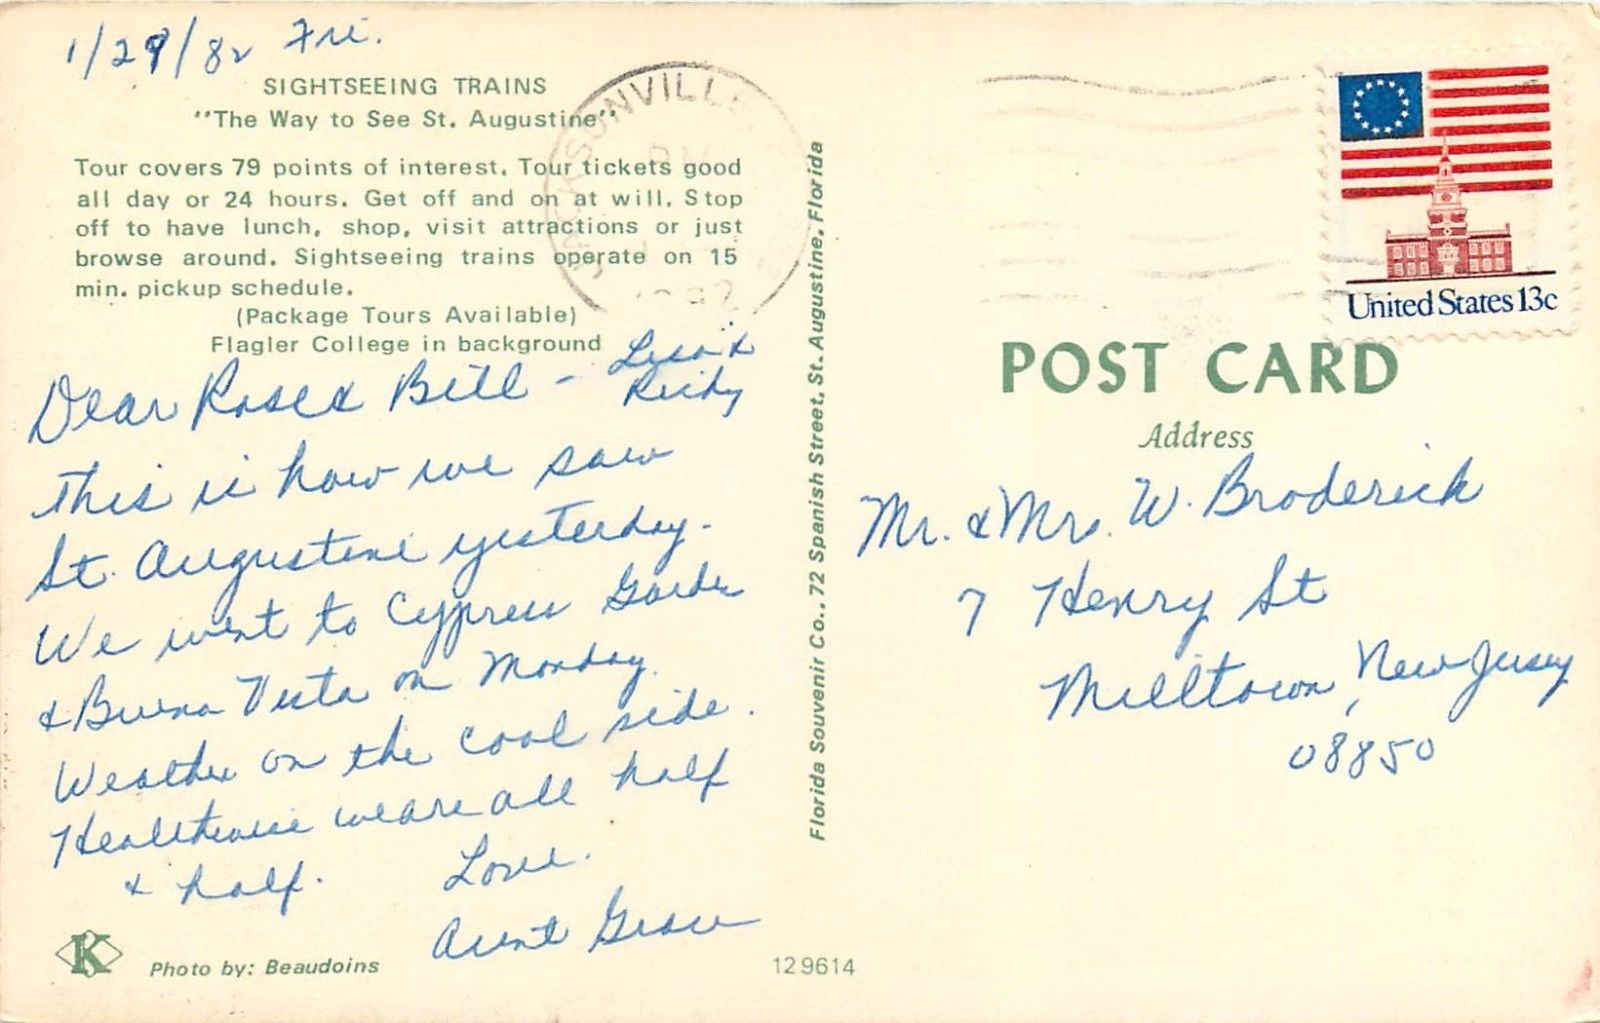 1/29/82 Fri.
SIGHTSEEING TRAINS
"The Way to See St. Augustine"
Tour covers 79 points of interest. Tour tickets good
all day or 24 hours. Get off and on at will. Stop
off to have lunch, shop, visit attractions or just
browse around. Sightseeing trains operate on 15
min. pickup schedule.
(Package Tours Available)
Flagler College in background
Dear Rose & Bill - Lisa &
Ricky
This is how we saw
St. Augustine yesterday.
We went to Cypress Garden
& Buena Vista on Monday.
Weather on the cool side.
Healthwise we are all half
& half.
Love.
Aunt Grace
K
Photo by: Beaudoins
129614
Florida Souvenir Co., 72 Spanish Street, St. Augustine, Florida
JACKSONVILLE
PM
1982
United States 13c
POST CARD
Address
Mr. & Mrs. W. Broderick
7 Henry St
Milltown, New Jersey
08850